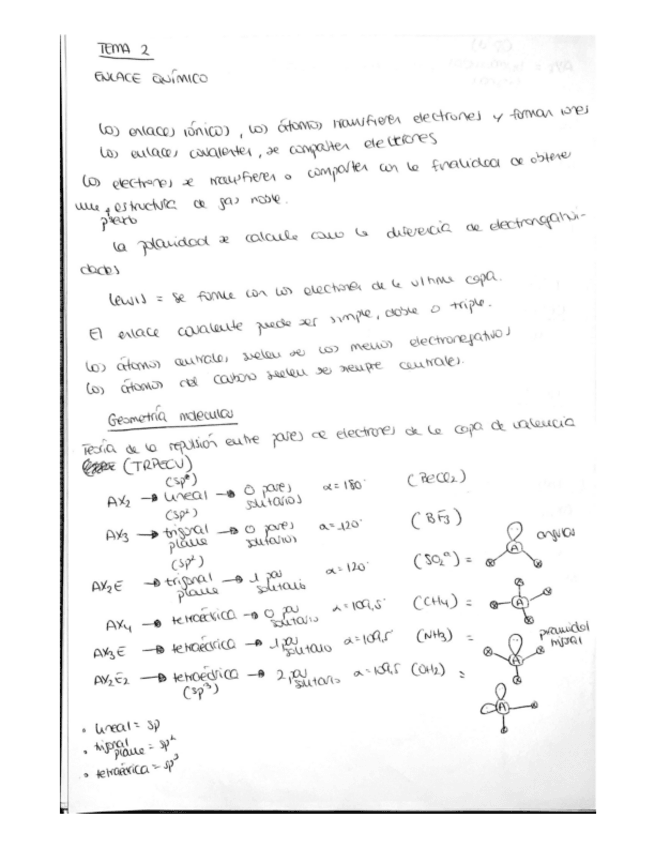 TEMA 2
ENLACE QUÍMICO
Los enlaces iónicos, los átomos transfieren electrones y forman iones
Los enlaces covalentes, se comparten electrones
Los electrones se transfieren o comparten con la finalidad de obtener
una estructura de gas noble.
La polaridad se calcula como la diferencia de electronegativi-
dades
Lewis = se forma con los electrones de la ultima capa.
El enlace covalente puede ser simple, doble o triple.
Los átomos centrales suelen ser los menos electronegativos
Los átomos del carbono suelen ser siempre centrales.
Geometría molecular
Teoría de la repulsión entre pares de electrones de la capa de valencia
(TRPECV)
AX₂ → lineal → 0 pares solitarios α=180° (BeCl₂)
(sp²)
AX₃ → trigonal plana → 0 pares solitarios α=120° (BF₃)
(sp²)
AX₂E → trigonal plana → 1 par solitario α=120° (SO₂) = A angular
AX₄ → tetraédrica → 0 par solitario α=109,5° (CH₄) = A
AX₃E → tetraédrica → 1 par solitario α=109,5 (NH₃) = A piramidal
AX₂E₂ → tetraédrica → 2 par solitario α=109,5 (OH₂) = A
(sp³)
• lineal = sp
• trigonal plana = sp²
• tetraédrica = sp³